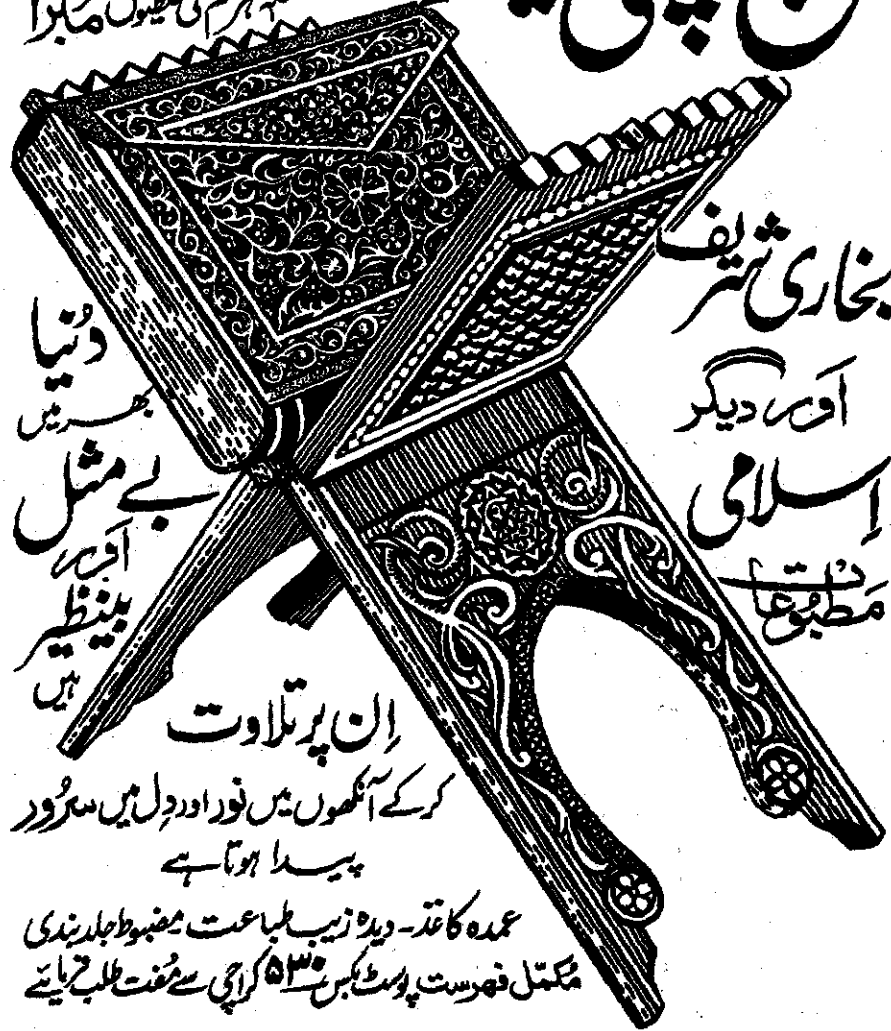 مبرا
بخاری شریف
اَور دیگر
اِسلامی
مَطبُوعات
دُنیا
بھر میں
بے مثل
اَور
بینظیر
ہیں
اِن پر تلاوت
کرکے آنکھوں میں نور اور دِل میں سرُور
پیدا ہوتا ہے
عمدہ کاغذ - دیدہ زیب طباعت مضبوط جلد بندی
مُکمّل فہرست پوسٹ بکس ۵۳۰ کراچی سے مُفت طلب فرمایئے